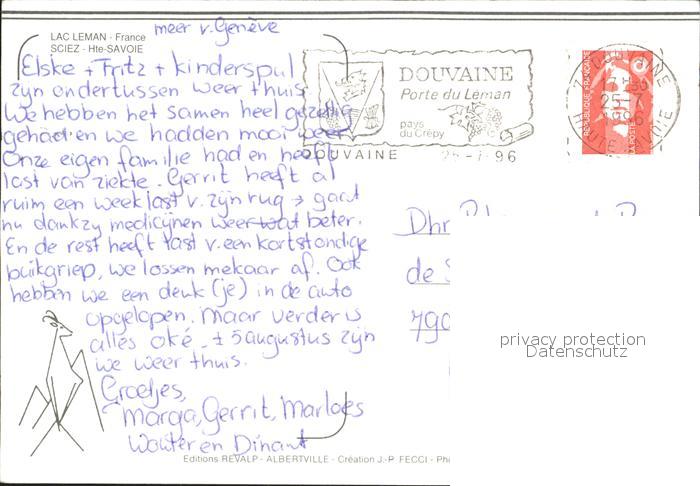 LAC LEMAN - France
SCIEZ - Hte-SAVOIE
meer v. Genève
Elske + Fritz + kinderspul
zijn ondertussen weer thuis.
We hebben het samen heel gezellig
gehad en we hadden mooi weer.
Onze eigen familie had en heeft
last van ziekte. Gerrit heeft al
ruim een week last v. zijn rug → gaat
nu dankzij medicijnen weer wat beter.
En de rest heeft last v. een kortstondige
buikgriep, we lossen mekaar af. Ook
hebben we een deuk(je) in de auto
opgelopen. Maar verder is
alles oké. ± 5 augustus zijn
we weer thuis.
Groetjes,
Marga, Gerrit, Marloes
Wouter en Dinant
DOUVAINE
Porte du Léman
pays
du Crépy
DOUVAINE 25-7-96
REPUBLIQUE FRANÇAISE
LA POSTE
DOUVAINE
25-7
1996
HAUTE SAVOIE
Dhr
de S
790
privacy protection
Datenschutz
Editions REVALP - ALBERTVILLE - Création J.-P. FECCI - Ph